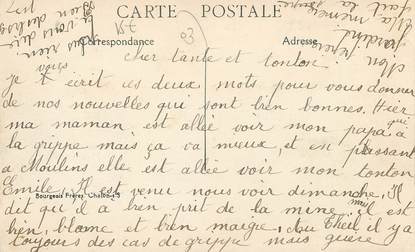 CARTE POSTALE
Correspondance
Adresse
03
cher tante et tonton
Je vous écrit ces deux mots pour vous donner
de nos nouvelles qui sont bien bonnes. Hier
ma maman est allée voir mon papa qui a
la grippe mais ça va mieux, et en passant
a Moulins elle est allée voir mon tonton
Emile. Il est venu nous voir dimanche, il
dit qu'il a bien prit de la mine, mais il est
bien blame et bien maigre, au Theil il y a
toujours des cas de grippe mais guère
Bourgeois Frères, Chalon-s-S